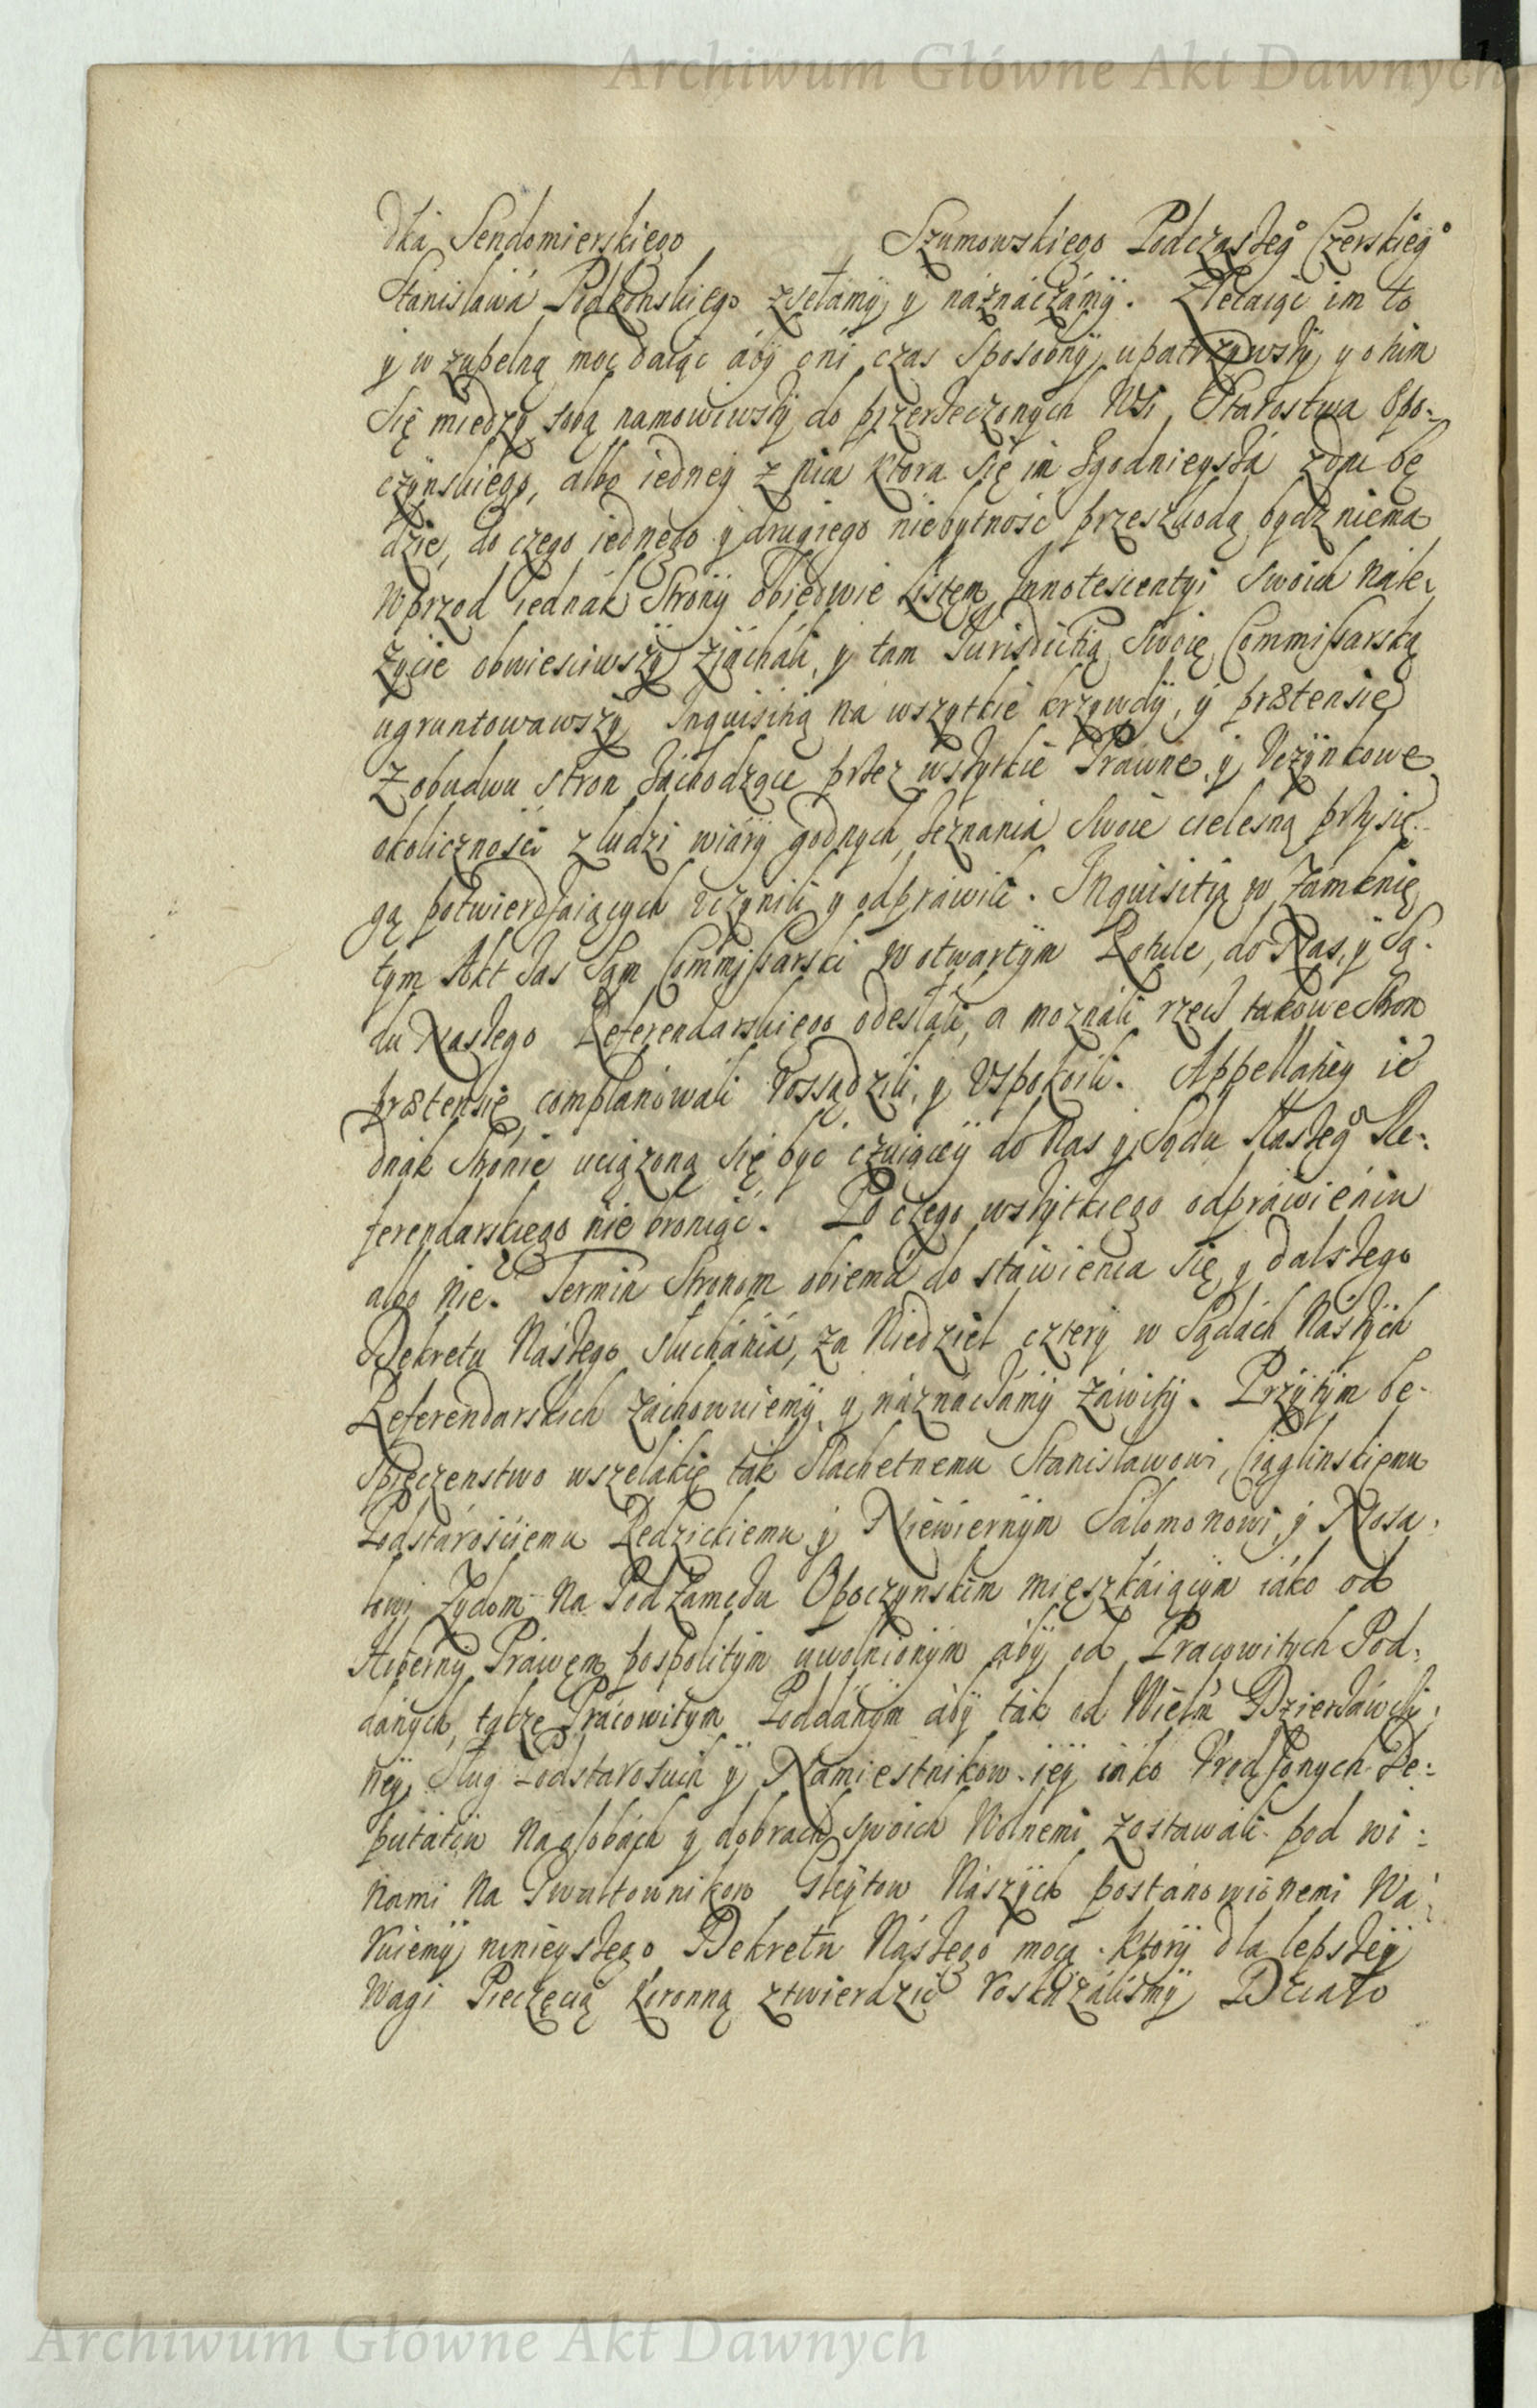 Archiwum Główne Akt Dawnych
dka Sendomierskiego Szumowskiego Podczaszeg° Czerskieg°
Stanisława Podkonskiego zsełamÿ y náznáczámÿ. Zlecaiąc im to
y w zupełną moc daiąc ábÿ oni czas sposobnÿ upatrzywszÿ y o nim
się między sobą namowiwszÿ do przerzeczonych Wsi, Starostwa Opo-
czÿnskiego, albo iedneÿ z nich ktora się im zgodnieysza zdac bę
dzie, do czego iednego y drugiego niebytność przeszkodą bydz niema
Wprzod iednák Stronÿ obiedwie Listem Innotescentyi Swoich nale-
życie obwiesciwszÿ Zjácháli, y tam Jurisdictią Swoię Commissarską
ugruntowawszÿ Inquisitią ná wszytkie krzywdÿ, ÿ prætensie
Z obudwu stron záchodzące przez wszytkie Prawne y Uczÿnkowe
okoliczności z ludzi wiárÿ godnych, zeznania Swoie cielesną przysię-
gą potwierdzaiących Uczynili y odprawili. Inquisitią w zamknię
tym Akt zas Sąm Commissarski w otwartÿm Rotule, do Nas, ÿ Są-
du Naszego Referendarskiego odesłali, a moznali rzecz takowe Stron
prætensie complanowali rossądzili, y Uspokoili. Appellatiey ie
dnak Stronie uciążoną się być czuiąceÿ do Nas y Sądu Naszeg° Re-
ferendarskiego nie broniąc. Po czego wszÿtkiego odpráwieniu
albo nie. Termin Stronom obiemá do stáwienia się y dalszego
Dekretu Nászego słuchániá, za Niedziel czterÿ w Sądách Nászÿch
Referendarskich záchowuiemÿ y náznáczámÿ záwitÿ. Przÿtÿm be-
spieczenstwo wszelákie ták Szlachetnemu Stanisławowi Ciąglinskiemu
Podstarościemu Redzickiemu ÿ Niewiernÿm Salomonowi, ÿ Mosz-
kowi Żydom Na Pod Zamczu Opoczynskim mieszkáiącÿm iáko od
Prawem pospolitÿm uwolnionÿm ábÿ od Pracowitych Pod-
dánych, także Prácowitÿm Poddánÿm ábÿ ták od Dzierżáwczy-
neÿ, Sług Podstarościch ÿ Namiestnikow ieÿ iáko Urodzonych De-
putátow na osobách y dobrach swoich Wolnemi zostawáli pod wi-
nami na Gwałtownikow Gleÿtow Nászÿch postánowionemi Wa-
ruiemÿ ninieyszego Dekretu Nászego mocą. Ktorÿ dla lepszeÿ
Wagi Pieczęcią Koronną ztwierdzić roskázáliśmÿ Działo
Archiwum Główne Akt Dawnych